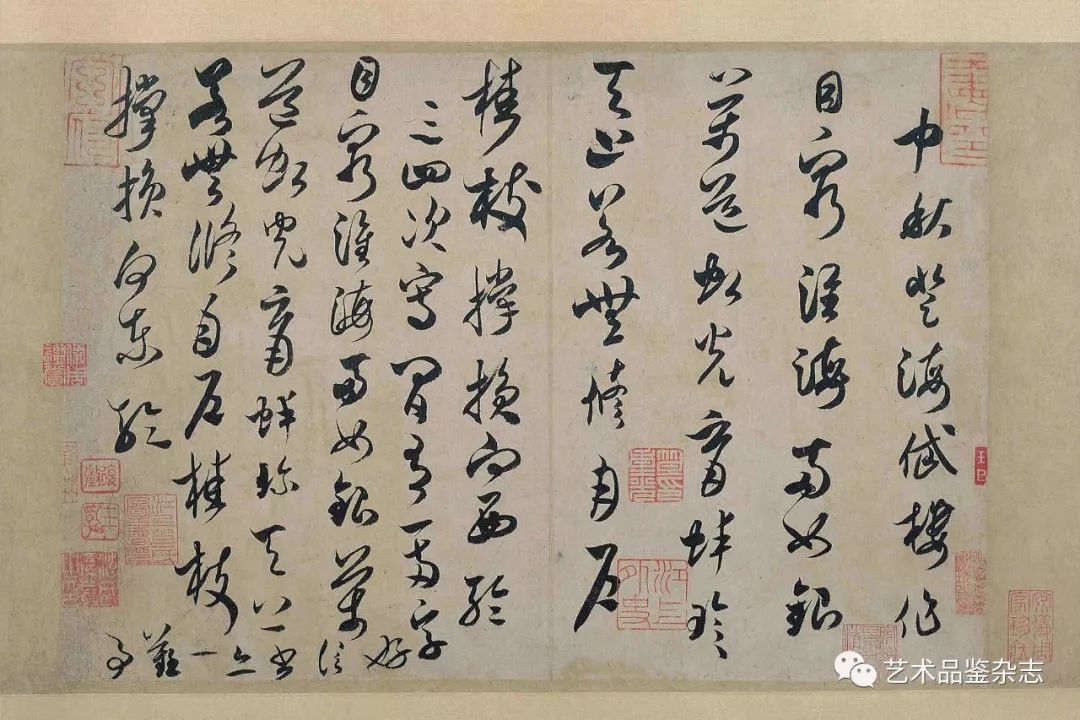 中秋登海岱樓作
目窮淮海兩如銀
萬道虹光育蚌珍
天上若無修月戶
桂枝撐損向西輪
三四次寫間有一兩字
目窮淮海兩如銀萬
道虹光育蚌珍天上
若無修月戶桂枝
撐損向東輪
好信書亦一難事
江上外史
安儀周家珍藏
艺术品鉴杂志